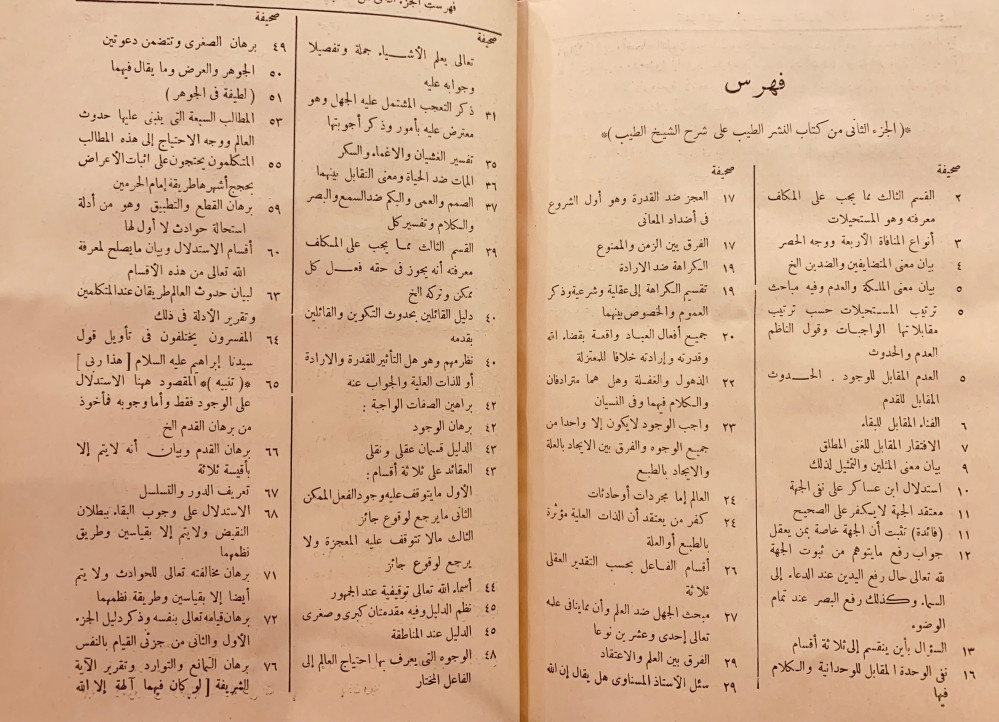 فهرس
*( الجزء الثانى من كتاب النشر الطيب على شرح الشيخ الطيب )*
صحيفة
٢ القسم الثالث مما يجب على المكلف
معرفته وهو المستحيلات
٣ أنواع المنافاة الأربعة ووجه الحصر
٤ بيان معنى المتضايفين والضدين الخ
٥ بيان معنى الملكة والعدم وفيه مباحث
٥ ترتيب المستحيلات حسب ترتيب
مقابلاتها الواجبات وقول الناظم
العدم والحدوث
٥ العدم المقابل للوجود . الحدوث
المقابل للقدم
٦ الفناء المقابل للبقاء
٧ الافتقار المقابل للغنى المطلق
٩ بيان معنى المثلين والتمثيل لذلك
١٠ استدلال ابن عساكر على نفى الجهة
١١ معتقد الجهة لايكفر على الصحيح
١١ (فائدة) تثبت أن الجهة خاصة بمن يعقل
١٢ جواب رفع مايتوهم من ثبوت الجهة
لله تعالى حال رفع اليدين عند الدعاء إلى
السماء وكذلك رفع البصر عند تمام
الوضوء
١٣ السؤال بأين ينقسم إلى ثلاثة أقسام
١٦ نفى الوحدة المقابل للوحدانية والكلام
فيها
صحيفة
١٧ العجز ضد القدرة وهو أول الشروع
فى أضداد المعانى
١٧ الفرق بين الزمن والممنوع
١٩ الكراهة ضد الارادة
١٩ تقسيم الكراهة إلى عقلية وشرعية وذكر
العموم والخصوص بينهما
٢٠ جميع أفعال العباد واقعة بقضاء الله
وقدرته وإرادته خلافا للمعتزلة
٢٢ الذهول والغفلة وهل هما مترادفان
والكلام فيهما وفى النسيان
٢٣ واجب الوجود لايكون إلا واحدا من
جميع الوجوه والفرق بين الايجاد بالعلة
والايجاد بالطبع
٢٤ العالم إما مجردات أوحادثات
٢٤ كفر من يعتقد أن الذات العلية مؤثرة
بالطبع أوالعلة
٢٦ أقسام الفاعل بحسب التقدير العقلى
ثلاثة
٢٧ مبحث الجهل ضد العلم وأن ماينافى علمه
تعالى إحدى وعشرين نوعا
٢٩ الفرق بين العلم والاعتقاد
٢٩ سئل الأستاذ المسناوى هل يقال إن الله
صحيفة
تعالى يعلم الأشياء جملة وتفصيلا
وجوابه عليه
٣١ ذكر التعجب المشتمل عليه الجهل وهو
معترض عليه بأمور وذكر أجوبتها
٣٥ تفسير الغشيان والاغماء والسكر
٣٦ الممات ضد الحياة ومعنى التقابل بينهما
٣٧ الصمم والعمى والبكم ضد السمع والبصر
والكلام وتفسير كل
٣٩ القسم الثالث مما يجب على المكلف
معرفته أنه يجوز فى حقه فعل كل
ممكن وتركه الخ
٤٠ دليل القائلين بحدوث التكوين والقائلين
بقدمه
٤٠ نظرمهم وهو هل التأثير للقدرة والارادة
أو للذات العلية والجواب عنه
٤٢ براهين الصفات الواجبة :
٤٢ برهان الوجود
٤٣ الدليل قسمان عقلى ونقلى
٤٣ العقائد على ثلاثة أقسام :
الأول مايتوقف عليه وجود الفعل الممكن
الثانى مايرجع لوقوع جائز
الثالث مالا تتوقف عليه المعجزة ولا
يرجع لوقوع جائز
٤٤ أسماء الله تعالى توقيفية عند الجمهور
٤٥ نظم الدليل وفيه مقدمتان كبرى وصغرى
٤٥ الدليل عند المناطقة
٤٨ الوجوه التى يعرف بها احتياج العالم إلى
الفاعل المختار
صحيفة
٤٩ برهان الصغرى وتتضمن دعوتين
٥٠ الجوهر والعرض وما يقال فيهما
٥١ ( لطيفة فى الجوهر )
٥٣ المطالب السبعة التى ينبنى عليها حدوث
العالم ووجه الاحتياج إلى هذه المطالب
٥٥ المتكلمون يحتجون على اثبات الأعراض
بحجج أشهرها طريقة إمام الحرمين
٥٩ برهان القطع والتطبيق وهو من أدلة
استحالة حوادث لا أول لها
٦٠ أقسام الاستدلال وبيان مايصلح لمعرفة
الله تعالى من هذه الأقسام
٦٣ لبيان حدوث العالم طريقان عند المتكلمين
وتقرير الأدلة فى ذلك
٦٤ المفسرون يختلفون فى تأويل قول
سيدنا إبراهيم عليه السلام [ هذا ربى ]
٦٥ *( تنبيه )* المقصود ههنا الاستدلال
على الوجود فقط وأما وجوبه فمأخوذ
من برهان القدم الخ
٦٦ برهان القدم وبيان أنه لايتم إلا
بأقيسة ثلاثة
٦٧ تعريف الدور والتسلسل
٦٨ الاستدلال على وجوب البقاء ببطلان
النقيض ولايتم إلا بقياسين وطريق
نظمهما
٧١ برهان مخالفته تعالى للحوادث ولا يتم
أيضا إلا بقياسين وطريقة نظمهما
٧٢ برهان قيامه تعالى بنفسه وذكر دليل الجزء
الأول والثانى من جزئى القيام بالنفس
٧٦ برهان التمانع والتوارد وتقرير الآية
الشريفة [ لو كان فيهما آلهة إلا الله